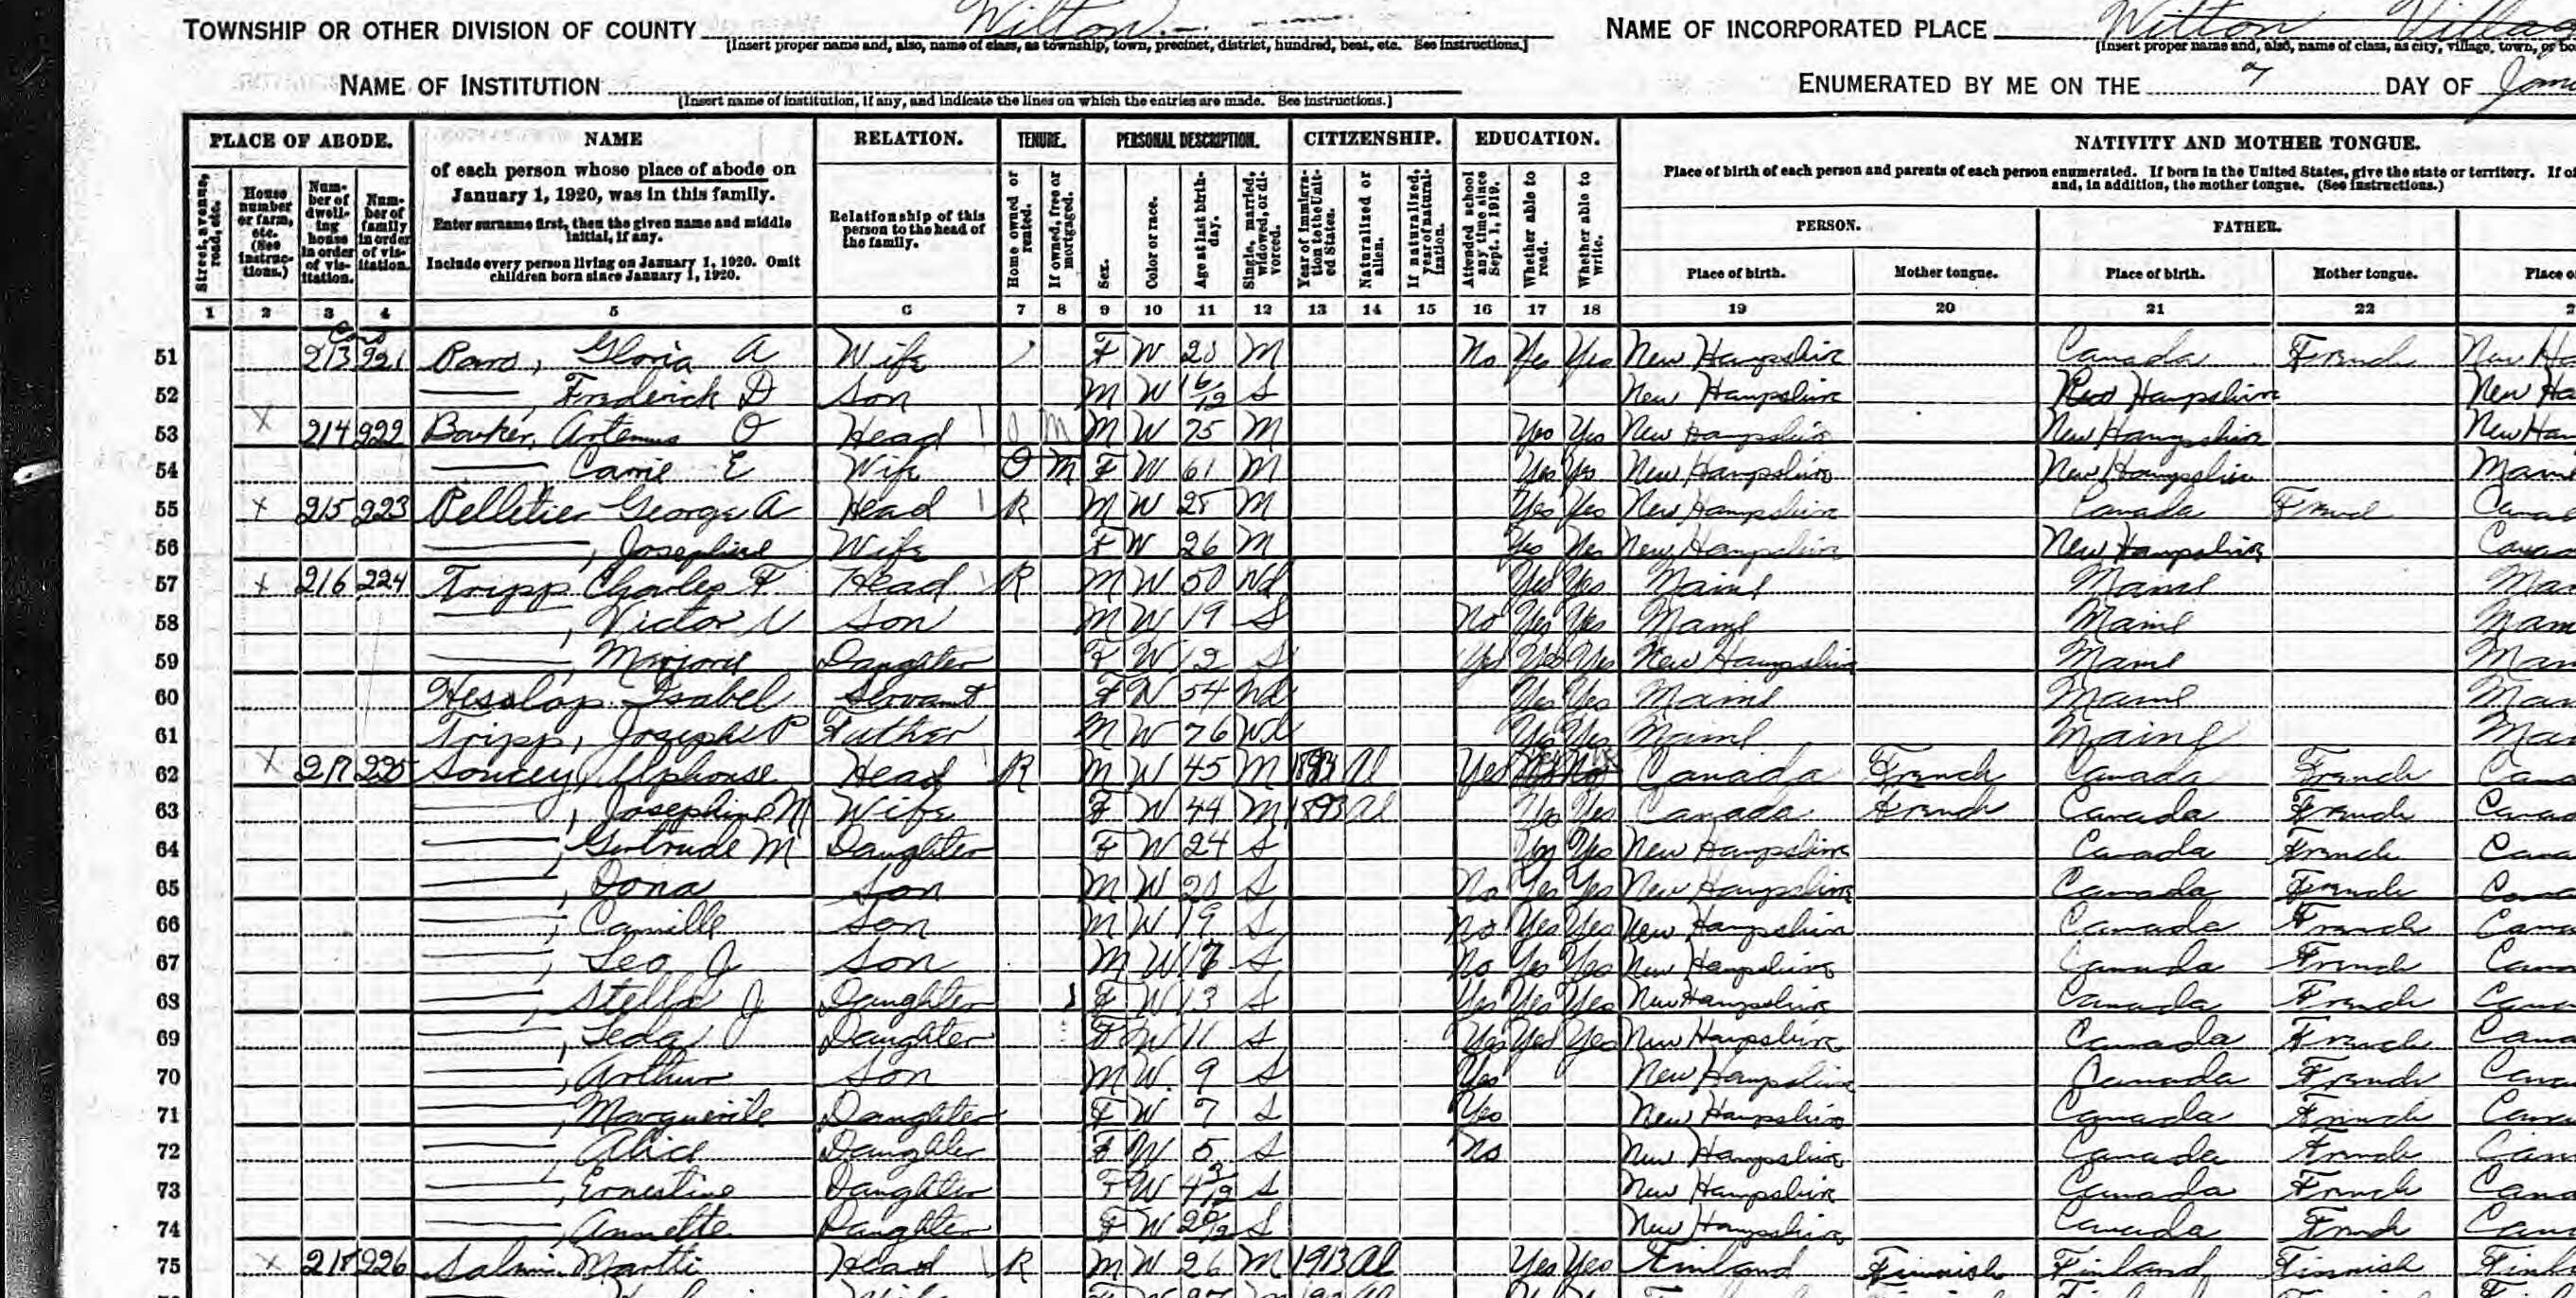 TOWNSHIP OR OTHER DIVISION OF COUNTY Wilton.
[Insert proper name and, also, name of class, as township, town, precinct, district, hundred, beat, etc. See instructions.]
NAME OF INCORPORATED PLACE Wilton Villa
[Insert proper name and, also, name of class, as city, village, town, or bo
NAME OF INSTITUTION
[Insert name of institution, if any, and indicate the lines on which the entries are made. See instructions.]
ENUMERATED BY ME ON THE 7 DAY OF Jan
PLACE OF ABODE. NAME RELATION. TENURE. PERSONAL DESCRIPTION. CITIZENSHIP. EDUCATION. NATIVITY AND MOTHER TONGUE.
Street, avenue, road, etc.
House number or farm, etc. (See instructions.)
Number of dwelling house in order of visitation.
Number of family in order of visitation.
of each person whose place of abode on January 1, 1920, was in this family.
Enter surname first, then the given name and middle initial, if any.
Include every person living on January 1, 1920. Omit children born since January 1, 1920.
Relationship of this person to the head of the family.
Home owned or rented.
If owned, free or mortgaged.
Sex.
Color or race.
Age at last birthday.
Single, married, widowed, or divorced.
Year of immigration to the United States.
Naturalized or alien.
If naturalized, year of naturalization.
Attended school any time since Sept. 1, 1919.
Whether able to read.
Whether able to write.
Place of birth of each person and parents of each person enumerated. If born in the United States, give the state or territory. If of
and, in addition, the mother tongue. (See instructions.)
PERSON. FATHER.
Place of birth. Mother tongue. Place of birth. Mother tongue. Place o
1 2 3 4 5 6 7 8 9 10 11 12 13 14 15 16 17 18 19 20 21 22 2
51 213 221 Gloria A Wife F W M No Yes Yes New Hampshire Canada French New Ha
52 Frederick D Son M W S New Hampshire New Hampshire New Ha
53 X 214 222 Artemus O Head O M M W 75 M Yes Yes New Hampshire New Hampshire New Ham
54 Carrie E Wife O M F W 61 M Yes Yes New Hampshire New Hampshire Maine
55 X 215 223 Pelletier George A Head R M W 28 M Yes Yes New Hampshire Canada French Canad
56 , Josephine Wife F W 26 M Yes Yes New Hampshire New Hampshire Canad
57 X 216 224 Tripp Charles F Head R M W 50 Wd Yes Yes Maine Maine Mai
58 , Victor Son M W 19 S No Yes Yes Maine Maine Mai
59 , Marjorie Daughter F W 12 S Yes Yes Yes New Hampshire Maine Mai
60 Isabel Servant F W 54 Wd Yes Yes Maine Maine Mai
61 Tripp, Joseph P Father M W 76 Wd Yes Yes Maine Maine Mai
62 X 217 225 Soucey, Alphonse Head R M W 45 M 1893 Al Yes Canada French Canada French Can
63 , Josephine M Wife F W 44 M 1893 Al Yes Yes Canada French Canada French Canad
64 , Gertrude M Daughter F W 24 S Yes Yes New Hampshire Canada French Cana
65 , Dona Son M W S No Yes Yes New Hampshire Canada French Can
66 , Camille Son M W 19 S No Yes Yes New Hampshire Canada French Cana
67 , Leo J Son M W S No Yes Yes New Hampshire Canada French Can
68 , Stella J Daughter F W 13 S Yes Yes Yes New Hampshire Canada French Cana
69 , Leda Daughter F W 11 S Yes Yes Yes New Hampshire Canada French Cana
70 , Arthur Son M W 9 S Yes New Hampshire Canada French Cana
71 , Marguerite Daughter F W 7 S Yes New Hampshire Canada French Can
72 , Alice Daughter F W 5 S No New Hampshire Canada French Can
73 , Ernestine Daughter F W 4 3/12 S New Hampshire Canada French Cana
74 , Annette Daughter F W S New Hampshire Canada French Cana
75 X 218 226 Martti Head R M W 26 M 1913 Al Yes Yes Finland Finnish Finland Finnish Finl